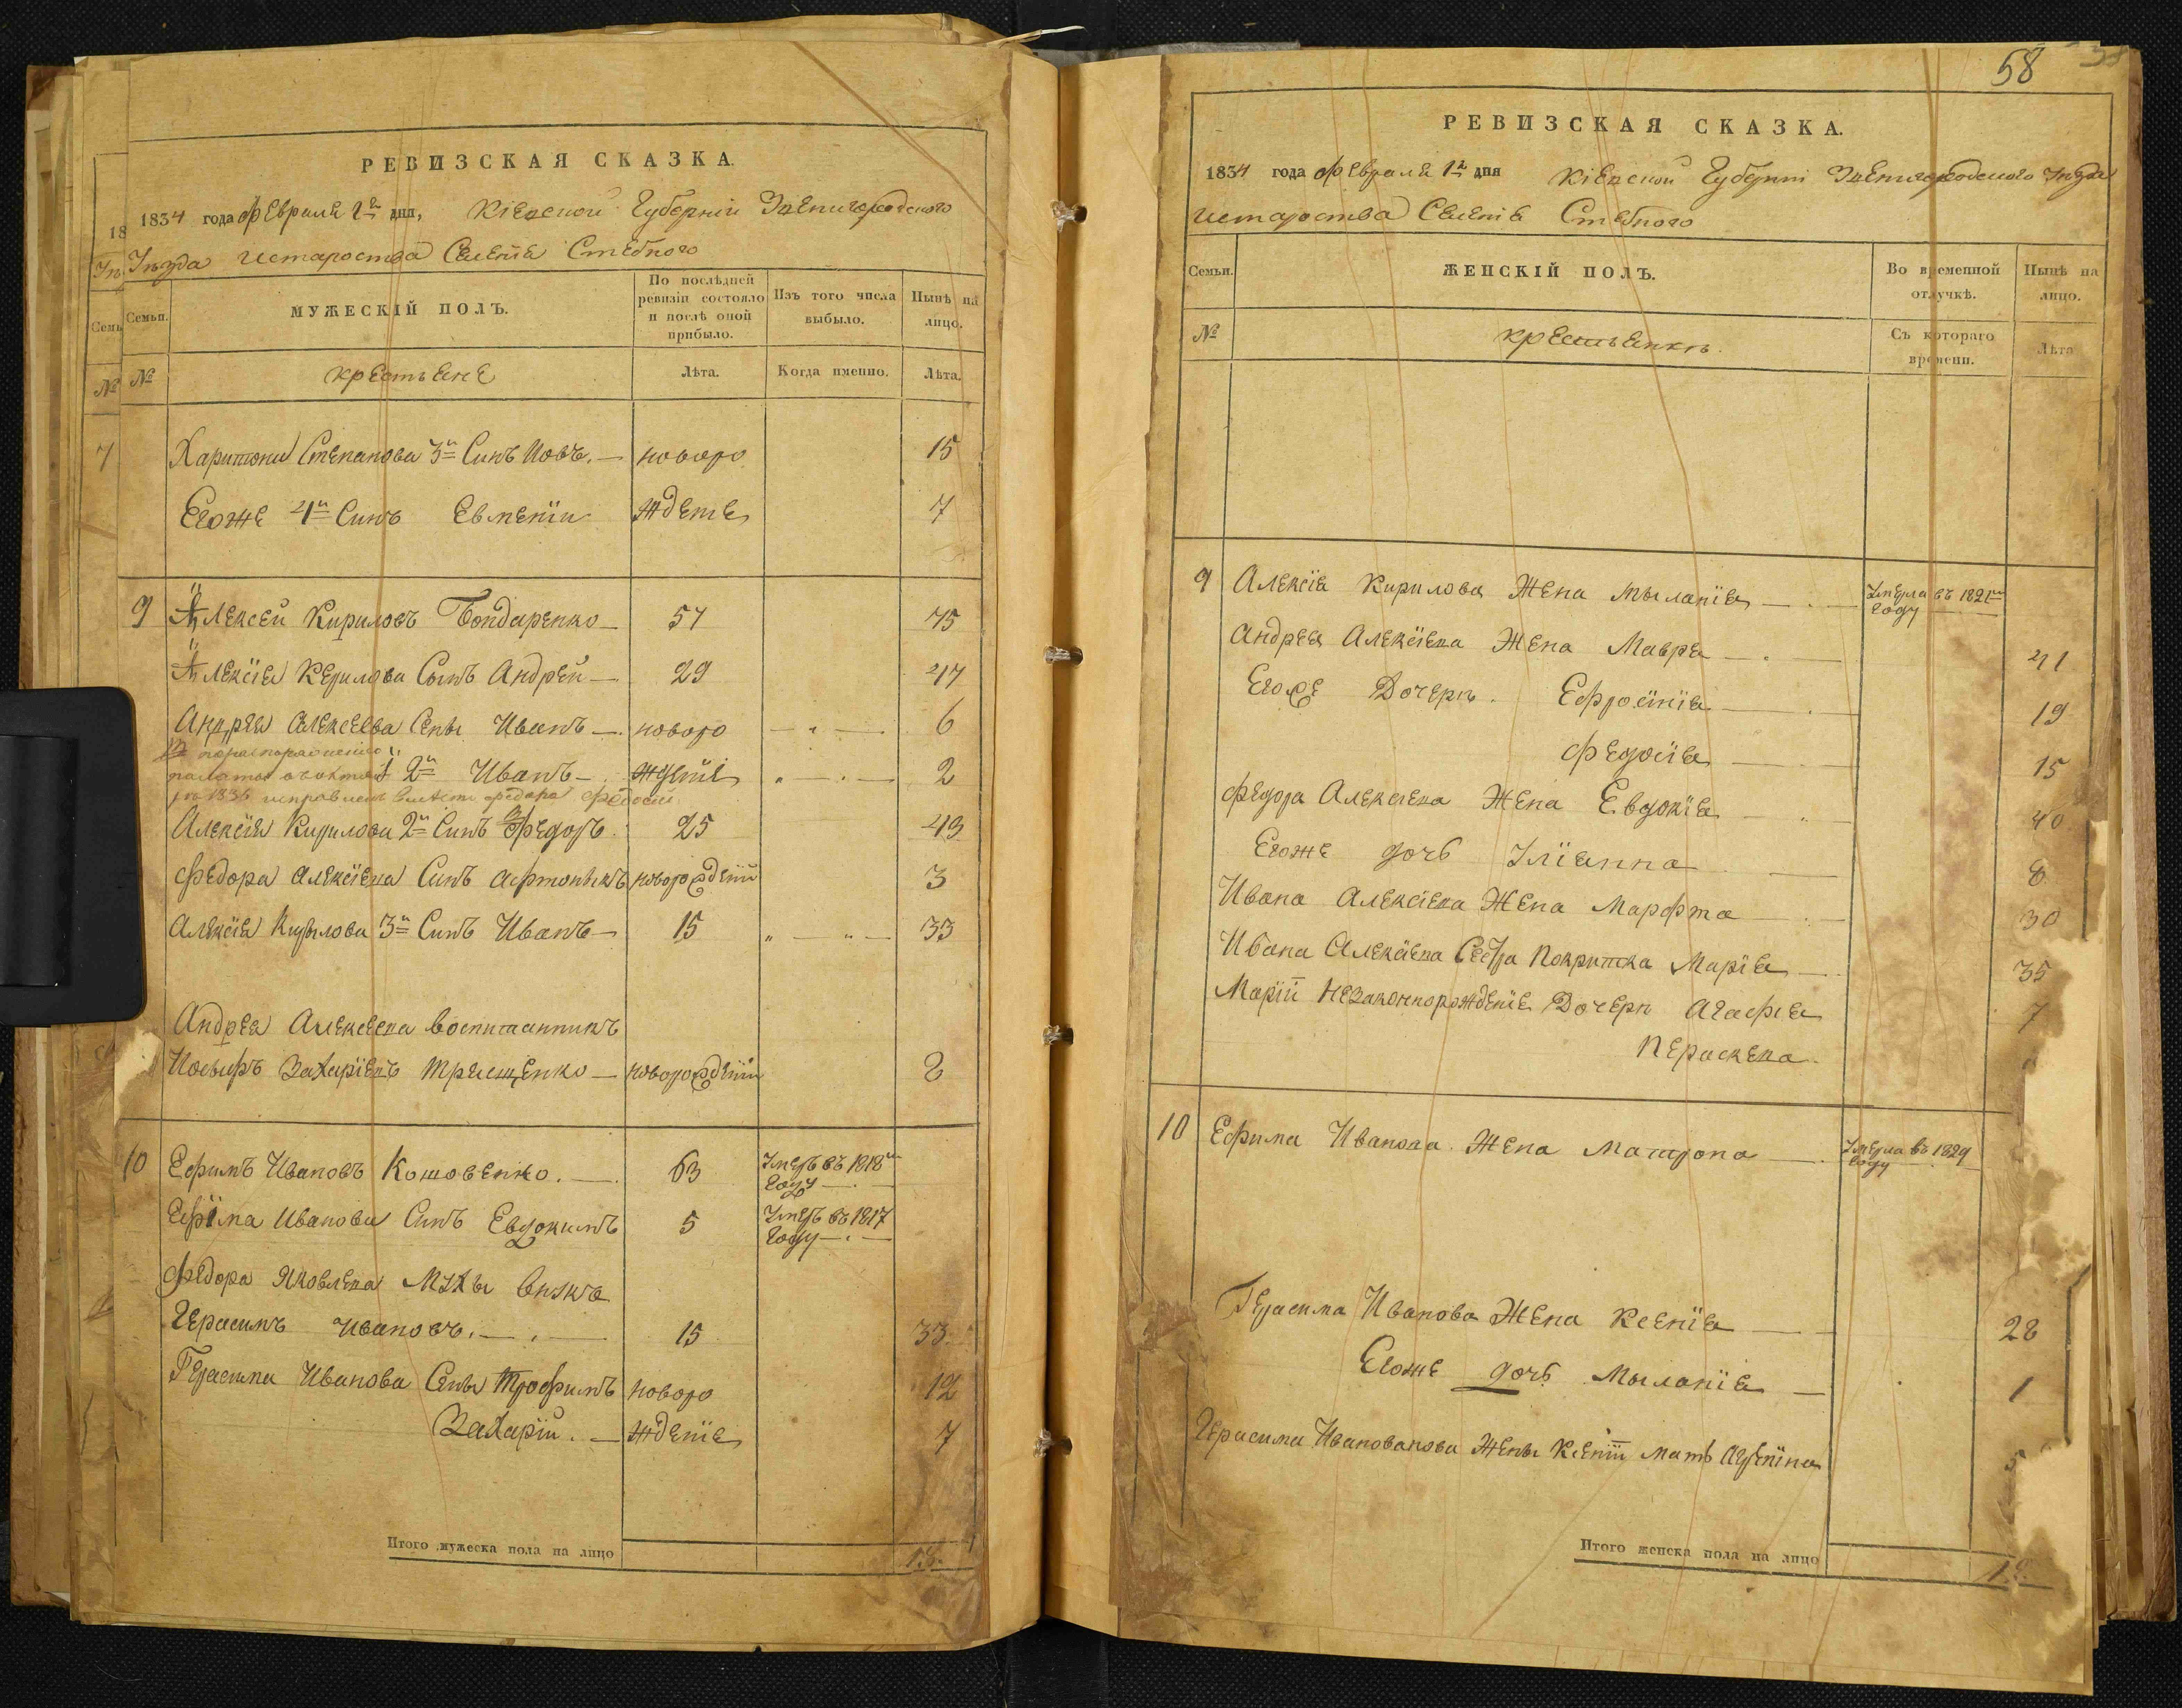 РЕВИЗСКАЯ СКАЗКА.
1834 года Февраля 1 дня, Кіевской Губерніи Звенигородского
Уѣзда Истароства Селенія Стебного
Семьи.
МУЖЕСКІЙ ПОЛЪ.
По послѣдней
ревизіи состояло
и послѣ оной
прибыло.
Изъ того числа
выбыло.
Нынѣ на
лицо.
№
крестьяне
Лѣта.
Когда именно.
Лѣта.
7 Харитона Степанова 3й Синъ Иовъ. — новоро 15
Егоже 4й Синъ Евмении ждение 7
9 Алексей Кириловъ Бондаренко — 57 75
Алексія Керилова Сынъ Андрей — 29 47
Андрея Алексеева Сены Иванъ — новоро 6
2й Иванъ — ждение 2
Алексія Кирилова 2й Синъ Федоръ 25 43
Федора Алексіева Синъ новорождений 3
Алексія Кирилова 3й Синъ Иванъ — 15 33
Андрея Алексеева воспитанникъ
Иосыфъ Захаріевъ новорождений 8
10 Ефимъ Ивановъ Кошовенко. — 63 Умеръ въ 1818м
Году
Ефіма Иванова Синъ Евдокимъ 5 Умеръ въ 1817
Году
Федора Яковлева Мухы Внукъ
Герасимъ Ивановъ. — 15 33
Герасима Иванова Сены Трофимъ новоро 12
Захарій. — ждение 7
Итого мужеска пола на лицо
58
РЕВИЗСКАЯ СКАЗКА.
1834 года Февраля 1 дня Кіевской Губерніи Звенигородского Уѣзда
Истароства Селенія Стебного
Семьи.
ЖЕНСКІЙ ПОЛЪ.
Во временной
отлучкѣ.
Нынѣ на
лицо.
№
крестьянкъ.
Съ котораго
времени.
Лѣта
9 Алексія Кирилова Жена Мыланія — Умерла въ 1821м
Году
Андрея Алексіева Жена Мавра — 41
Егоже Дочери. Ефросинія 19
Федосія 15
Федора Алексіева Жена Евдокія 40
Егоже дочь Уліанна 8
Ивана Алексіева Жена Марфта 30
Ивана Алексіева Сестра Покритка Марія 35
Маріи Незаконнорожденіе Дочери Агафія 7
Пераскева.
10 Ефима Иванова Жена Матрона — Умерла въ 1829
Году
Герасима Иванова Жена Ксенія 28
Егоже дочь Мыланія — 1
Герасима Иванованова Жены Ксеніи мать
Итого женска пола на лицо